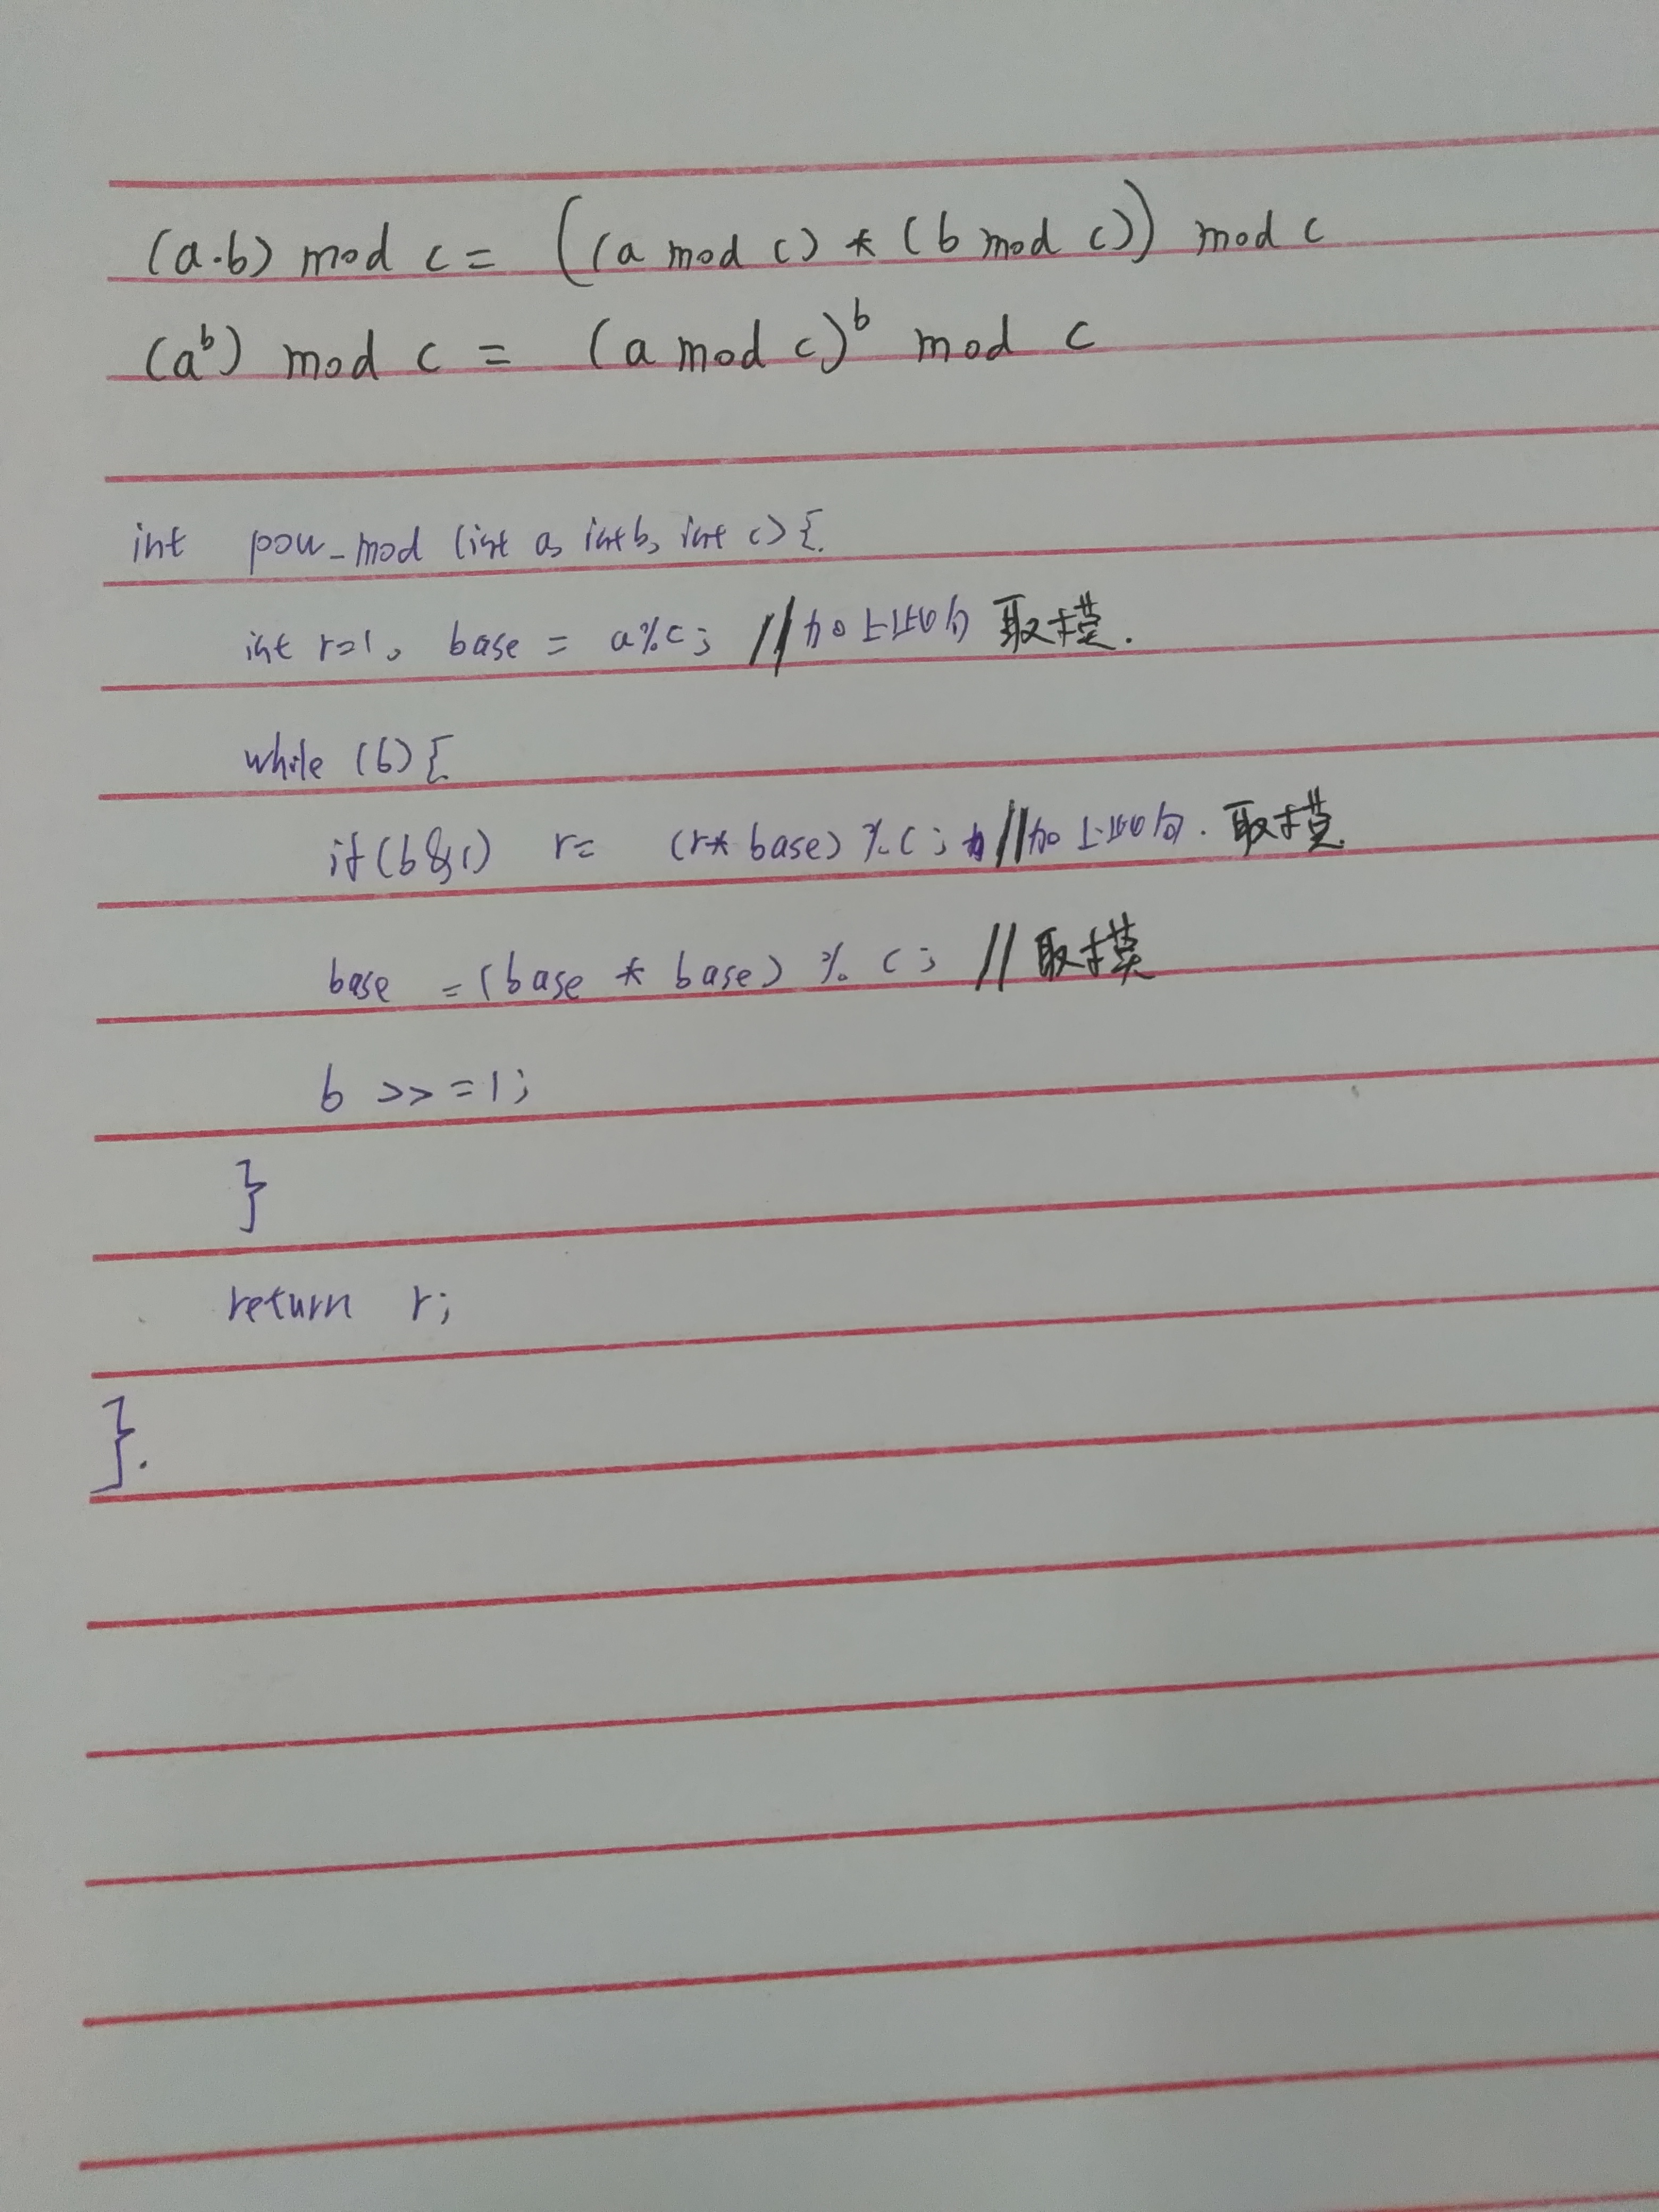 (a·b) mod c = ((a mod c) * (b mod c)) mod c
(a^b) mod c = (a mod c)^b mod c
int pow_mod (int a, int b, int c) {
int r=1, base = a%c; // 加上此句 取模.
while (b) {
if (b&1) r= (r* base) %c; //加上此句. 取模.
base = (base * base) % c; // 取模
b >>=1;
}
return r;
}.